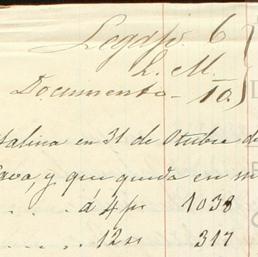 Legajo. 6
L. M.
Documento - 10.
alina en 31 de Otubre de
ava, y que queda en
á 4 ps 1038
12 rr 317